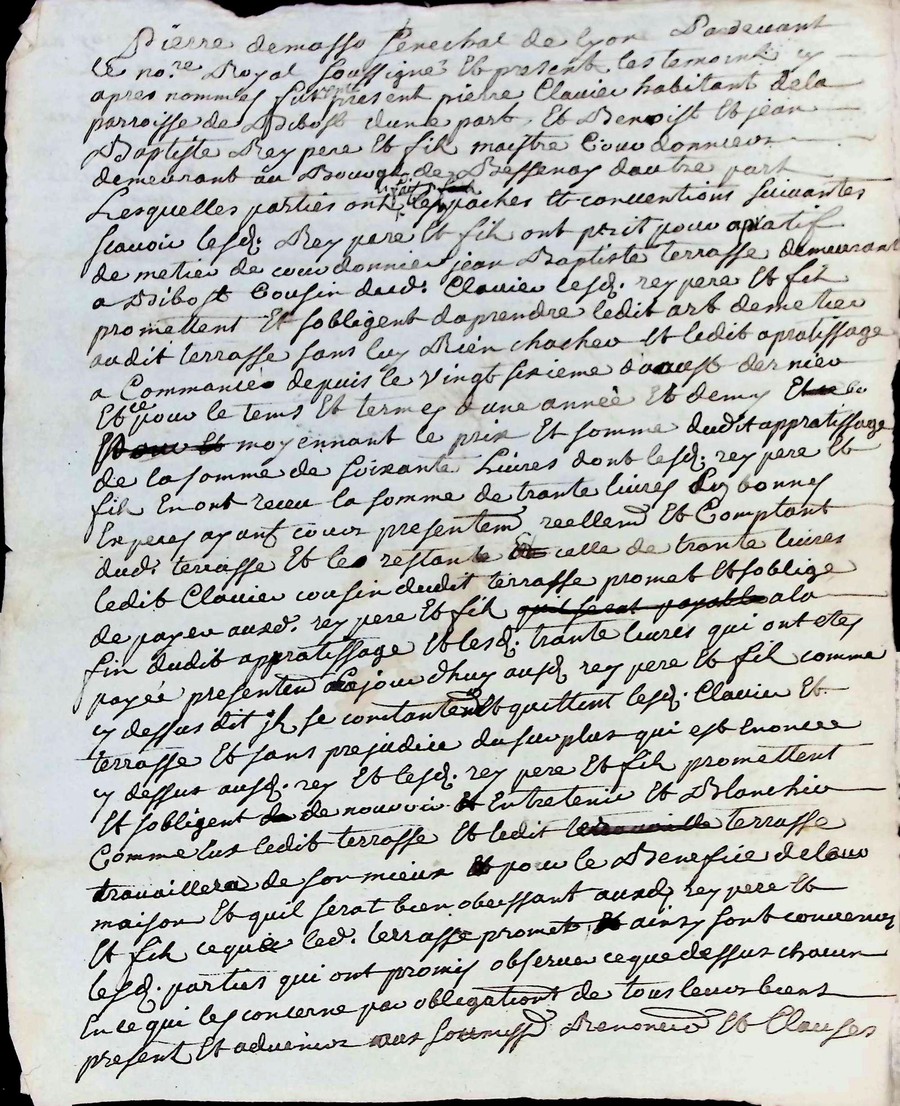 Pierre demasso Senechal de lyon Pardevant
le no.re Royal Soussigné Et present les temoins cy
apres nommes furent present pierre Clavier habitant de la
parroisse de Bibost dune part Et Benoist Et jean
Baptiste Rey pere Et fils maistre Courdonniers
demeurant au Bourg de Bessenay dautre part
Lesquelles parties ont fait les paches Et conventions suivantes
scavoir lesd. Rey pere Et fils ont prit pour apratif
de metier de courdonnier jean Baptiste terrasse demeurant
a Bibost Cousin dud. Clavier lesd. rey pere Et fils
promettent Et sobligent daprendre ledit art demetier
audit terrasse sans luy Rien chacher Et ledit apratissage
a Commancé depuis le vingt sixieme daoust dernier
Et ce pour le tems Et termes dune année Et demy
moyennant le prix Et somme dudit appratissage
de la somme de soixante Livres dont lesd. rey pere Et
fils En ont receu la somme de trante livres En bonnes
Especes ayant cour presentem reellem Et Comptant
dud. terrasse Et les restante celle de trante livres
ledit Clavier cousin dudit terrasse promet Et soblige
de payer auxd. rey pere Et fils quil seront payable a la
fin dudit appratissage Et lesd. trante livres qui ont etes
payée presentem cejourdhuy ausd. rey pere Et fils comme
cy dessus dit ils se contantent Et quittent lesd. Clavier Et
terrasse Et sans prejudice du surplus qui est Enoncée
cy dessus ausd. rey Et lesd. rey pere Et fils promettent
Et sobligent de nourrir Et Entretenir Et Blanchir
Comme Eux ledit terrasse Et ledit terrasse
travaillera de son mieux Et pour le Benefice de leur
maison Et quil serat bien obeissant auxd. rey pere Et
Et fils ceque led. terrasse promet Et ainsy sont convenus
lesd. parties qui ont promis observer ceque dessus chacun
En ce qui les concerne par obligations de tous leurs biens
present Et advenir aux soumiss Renonc Et Clauses